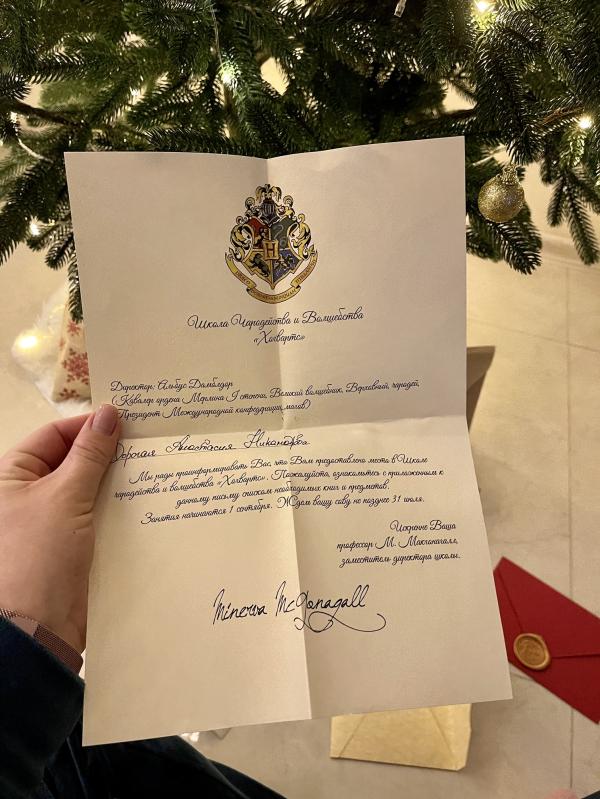 Школа Чародейства и Волшебства
«Хогвартс»
Директор: Альбус Дамблдор
(Кавалер ордена Мерлина I степени, Великий волшебник, Верховный чародей,
Президент Международной конфедерации магов)
Дорогая Анастасия Никанорова
Мы рады проинформировать Вас, что Вам предоставлено место в Школе
чародейства и волшебства «Хогвартс». Пожалуйста, ознакомьтесь с приложенным к
данному письму списком необходимых книг и предметов.
Занятия начинаются 1 сентября. Ждем вашу сову не позднее 31 июля.
Искренне Ваша
профессор М. Макгонагалл,
заместитель директора школы.
Minerva McGonagall